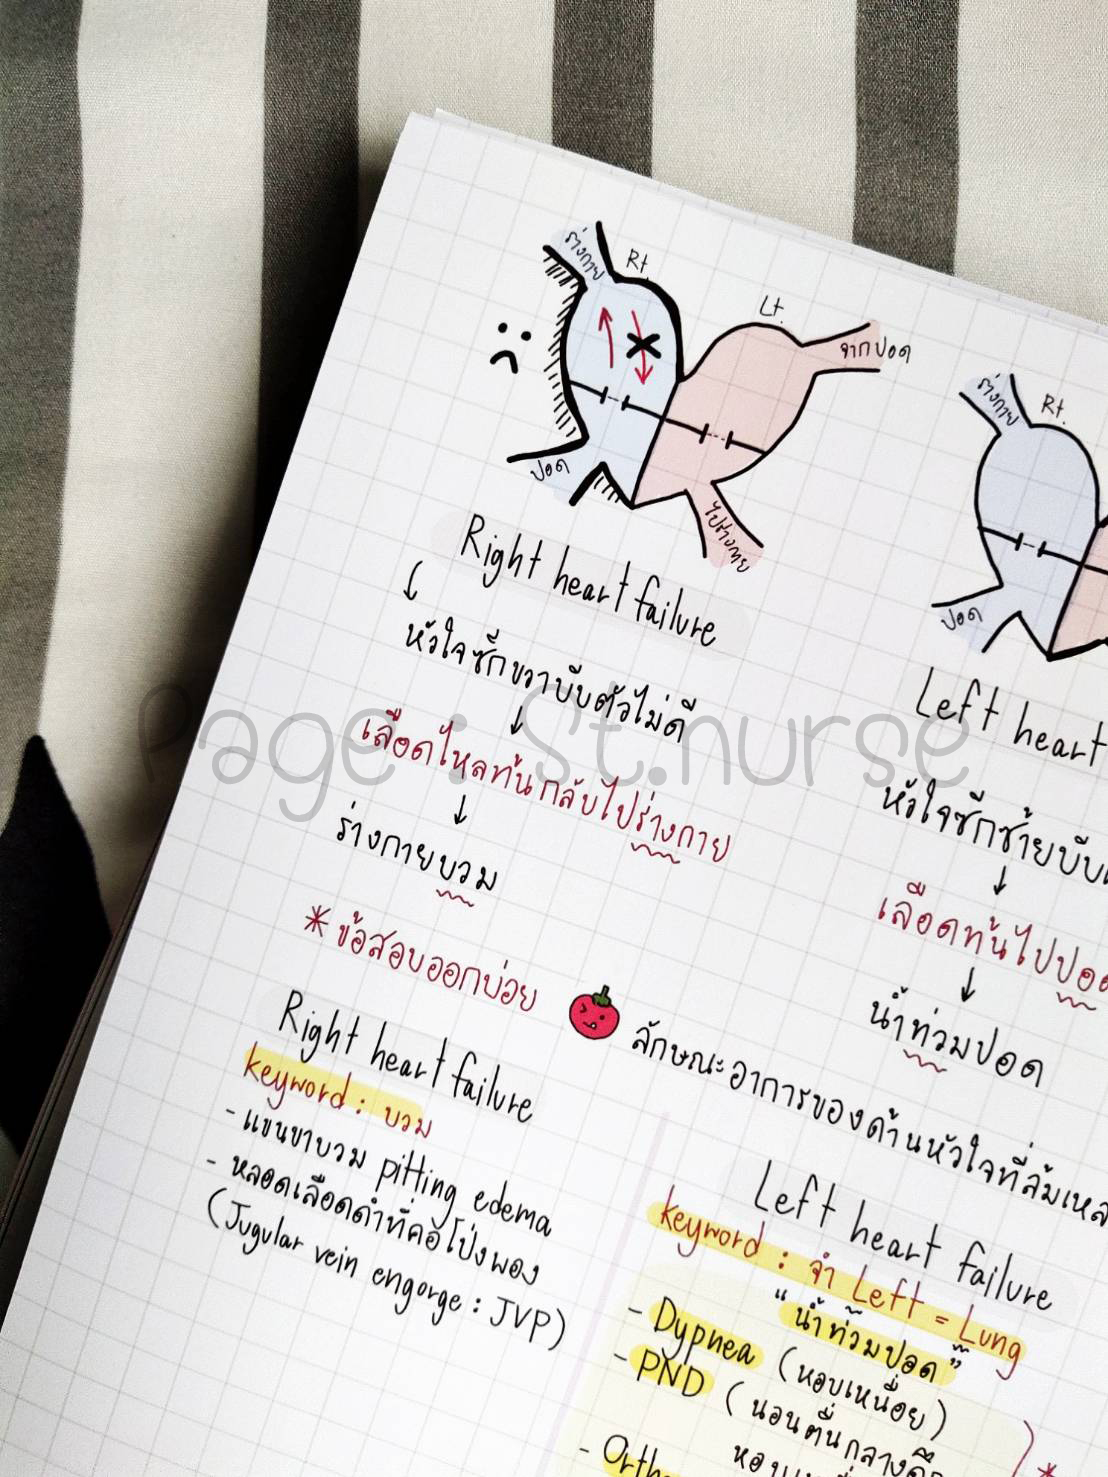 ร่างกาย
Rt.
Lt.
จากปอด
ปอด
ไปร่างกาย
Right heart failure
หัวใจซีกขวาบีบตัวไม่ดี
เลือดไหลท้นกลับไปร่างกาย
ร่างกายบวม
ร่างกาย
Rt.
ปอด
Left heart
หัวใจซีกซ้ายบีบ
เลือดท้นไปปอด
น้ำท่วมปอด
Page : St.nurse
*ข้อสอบออกบ่อย
ลักษณะอาการของด้านหัวใจที่ล้มเหล
Right heart failure
keyword : บวม
- แขนขาบวม pitting edema
- หลอดเลือดดำที่คอโป่งพอง
(Jugular vein engorge : JVP)
Left heart failure
keyword : จำ Left = Lung
"น้ำท่วมปอด"
- Dypnea (หอบเหนื่อย)
- PND (นอนตื่นกลางดึก
- Ortho